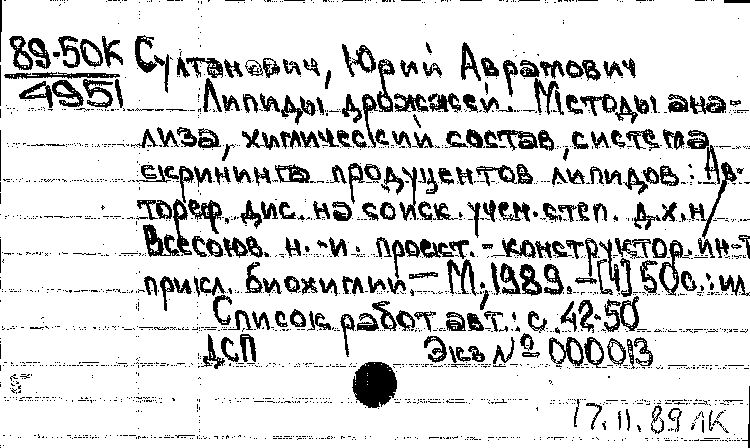 89-50К Султанович, Юрий Аврамович
4951
Липиды дрожжей. Методы ана-
лиза, химический состав, система
скрининга продуцентов липидов: Ав-
тореф. дис. на соиск. учен. степ. д.х.н /
Всесоюз. н.-и. проект.-конструктор. ин-т
прикл. биохимии. — М., 1989. — [4] 50с.: ил
Список работ авт.: с. 42-50
ДСП Экз № 000013
17.11.89 ЛК